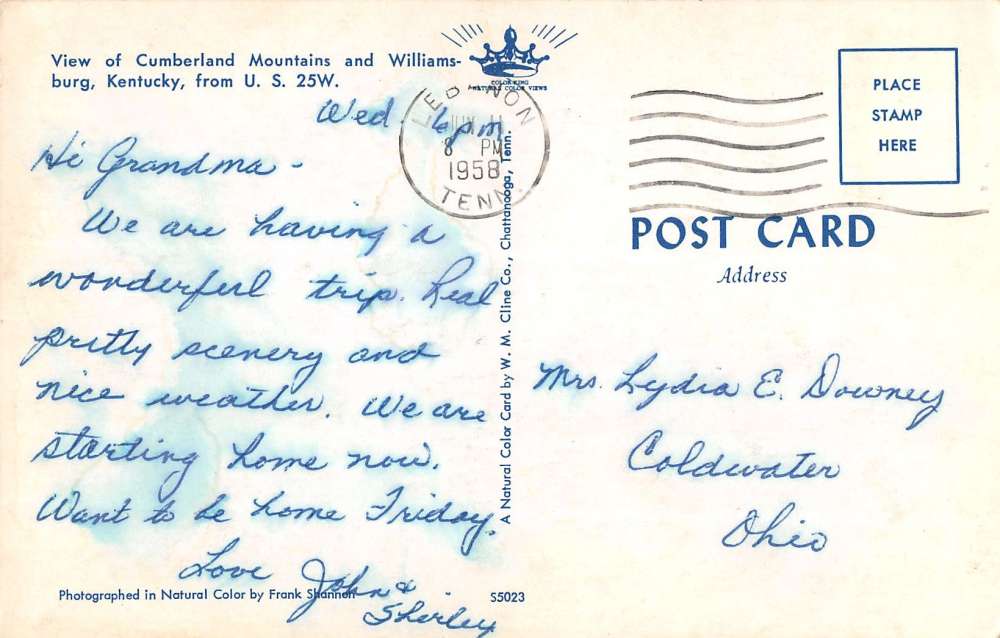 View of Cumberland Mountains and Williams-
burg, Kentucky, from U. S. 25W.
COLOR KING
NATURAL COLOR VIEWS
LEBANON
JUN 11
8 PM
1958
TENN.
PLACE
STAMP
HERE
POST CARD
Address
Wed. 6pm
Hi Grandma -
We are having a
wonderful trip. Real
pretty scenery and
nice weather. We are
starting home now.
Want to be home Friday.
Love John &
Shirley
A Natural Color Card by W. M. Cline Co., Chattanooga, Tenn.
Mrs. Lydia E. Downey
Coldwater
Ohio
Photographed in Natural Color by Frank Shannon
S5023